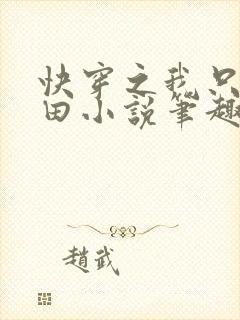 快穿之我只
田小説筆趣
趙武